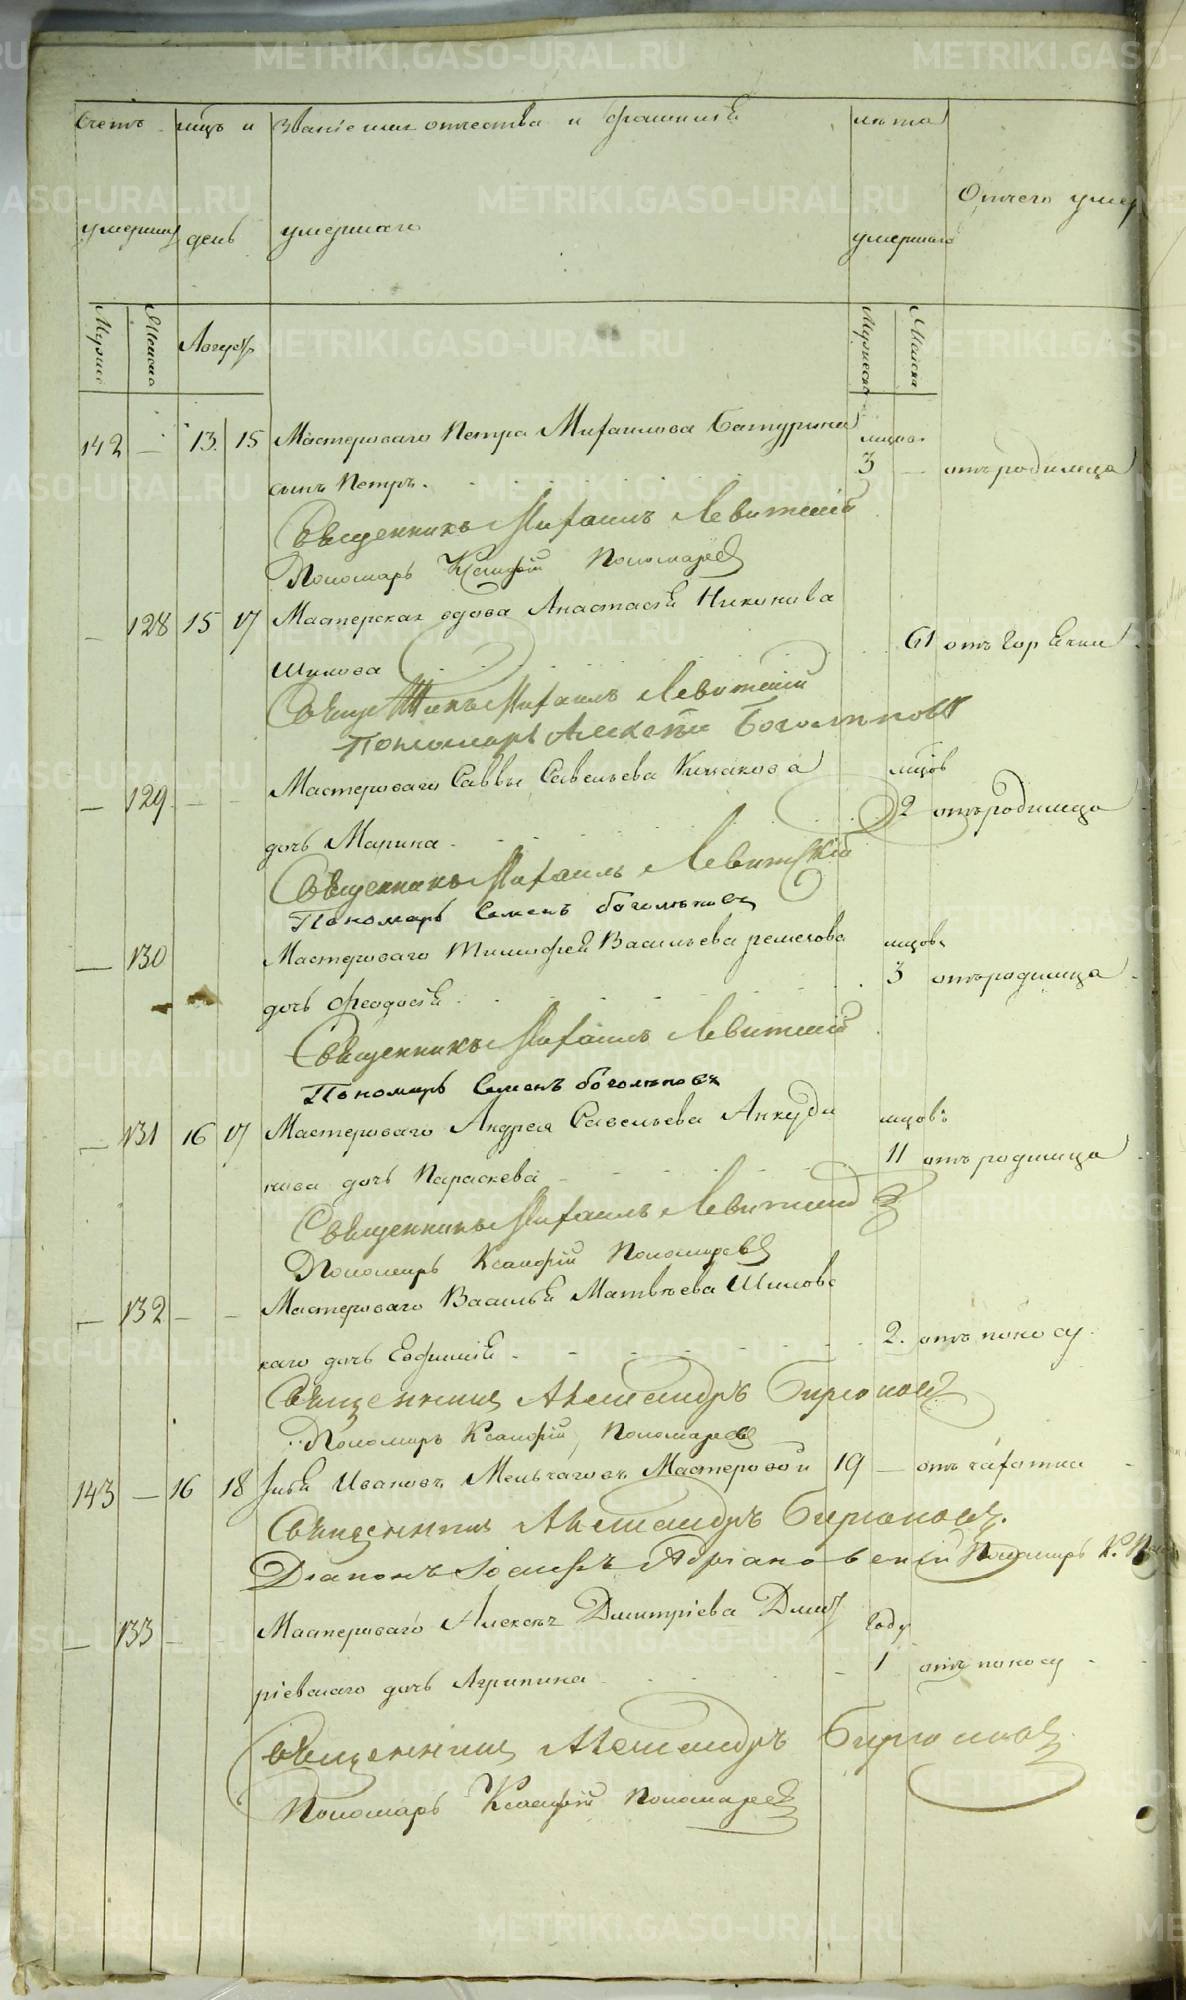 Счетъ мцъ и Званіе имя отчества и фамилія лѣта
умершихъ день умершаго умершаго Отчего умер
Мужска Женска Август Мужеска Женска
142 — 13. 15 Мастероваго Петра Михаилова Батурина мцов.
сынъ Петръ. 3 — отъ родимца
Священникъ Михаилъ Левитскій
Пономарь Ксанфій Пономаревъ
— 128 15 17 Мастерская вдова Анастасія Никонива
Шилова 61 отъ Горячки
Священникъ Михаилъ Левитскій
Пономарь Алексѣй Боголѣповъ
— 129 — — Мастероваго Саввы Савельева мцов
дочь Марина 2 отъ родимца
Священникъ Михаилъ Левитскій
Пономарь Семенъ боголѣповъ
— 130 Мастероваго Тимофей Васильева ремезова мцов.
дочь Феодосія 3 отъ родимца
Священникъ Михаилъ Левитскій
Пономарь Семенъ боголѣповъ
— 131 16 17 Мастероваго Андрея Савельева Анкуди мцовъ
нова дочь Параскева 11 отъ родимца
Священникъ Михаилъ Левитскій
Пономарь Ксанфій Пономаревъ
— 132 — — Мастероваго Василья Матвѣева Шиловс
каго дочь Евфимія 2. отъ поносу
Священникъ Александръ Бирюковъ
Пономарь Ксанфій Пономаревъ
143 — 16 18 Илья Ивановъ Мельчаговъ Мастеровой 19 — отъ чахотки
Священникъ Александръ Бирюковъ.
Діаконъ Іосифъ Адріановскій Пономарь К.
— 133 — — Мастероваго Алексѣя Дмитріева Дмит Году
ріевскаго дочь Агрипина — 1 отъ поносу
Священникъ Александръ Бирюковъ
Пономарь Ксанфій Пономаревъ